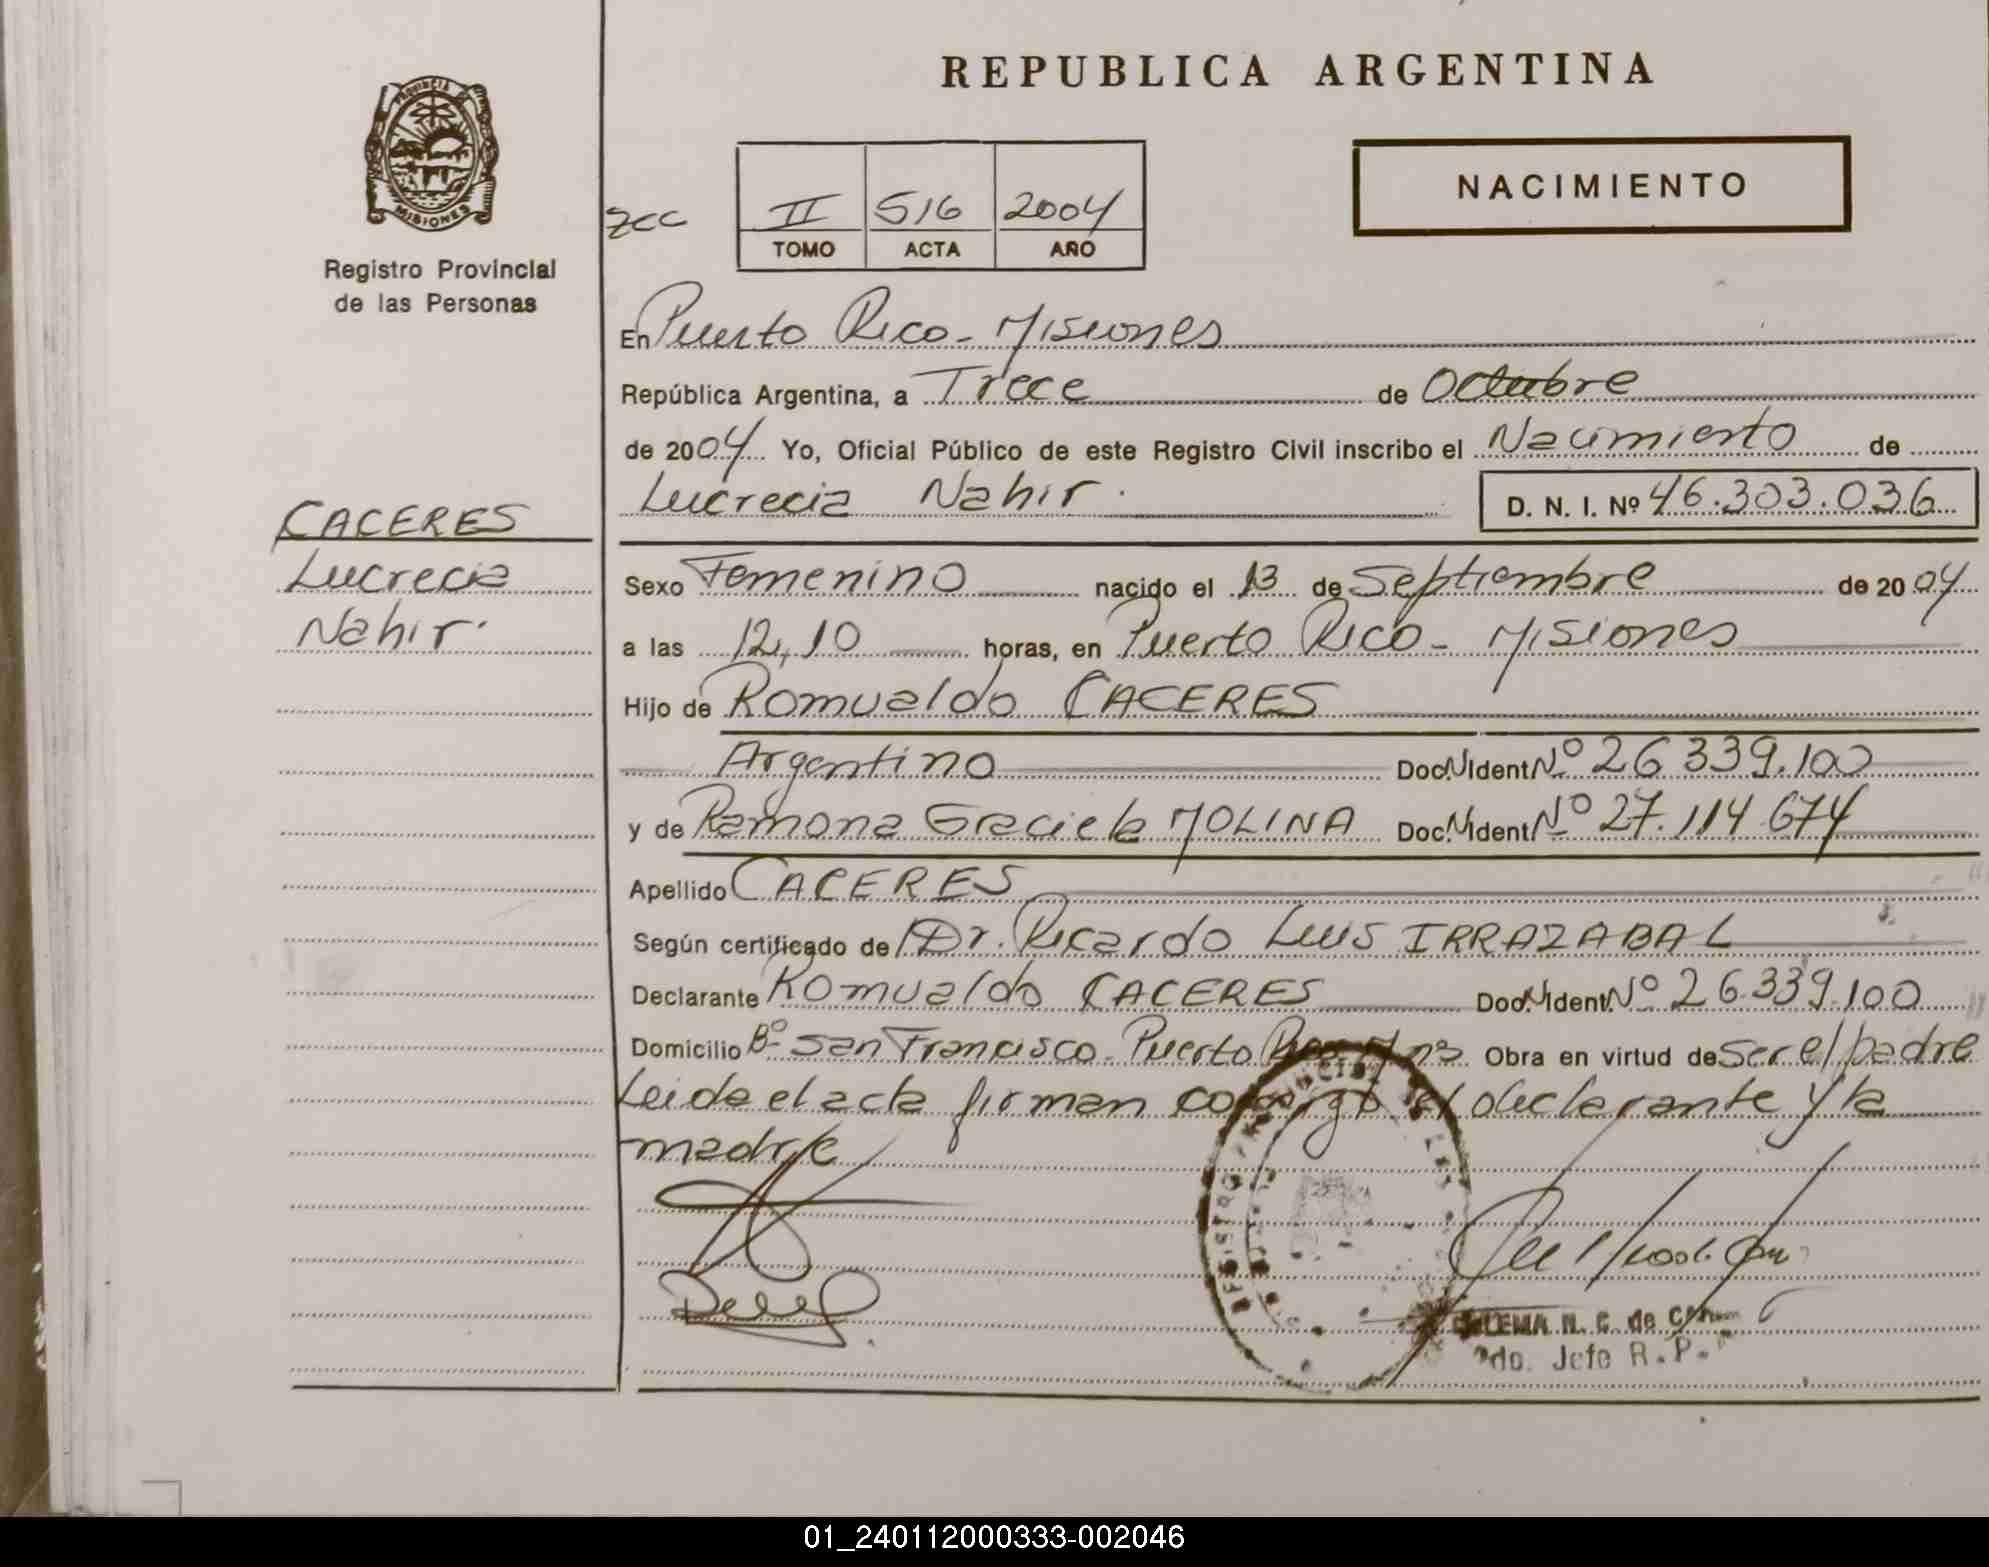 REPUBLICA ARGENTINA
PROVINCIA DE
MISIONES
Registro Provincial
de las Personas
NACIMIENTO
II 516 2004
TOMO ACTA AÑO
En Puerto Rico - Misiones
República Argentina, a Trece de Octubre
de 2004 Yo, Oficial Público de este Registro Civil inscribo el Nacimiento de
Lucrecia Nahir. D. N. I. Nº 46.303.036
CACERES
Lucrecia
Nahir.
Sexo Femenino nacido el 13 de Septiembre de 2004
a las 12,10 horas, en Puerto Rico - Misiones
Hijo de Romualdo CACERES
Argentino Doc. N. Ident Nº 26 339.100
y de Ramona Graciela MOLINA Doc. N. Ident Nº 27.114 674
Apellido CACERES
Según certificado de Dr. Ricardo Luis IRRAZABAL
Declarante Romualdo CACERES Doc. N. Ident. Nº 26.339.100
Domicilio Bº San Francisco - Puerto Rico Mnes Obra en virtud de ser el padre
Leida el acta firman conmigo el declarante y la
madre
N. C. de
Jefe R. P.
01_240112000333-002046